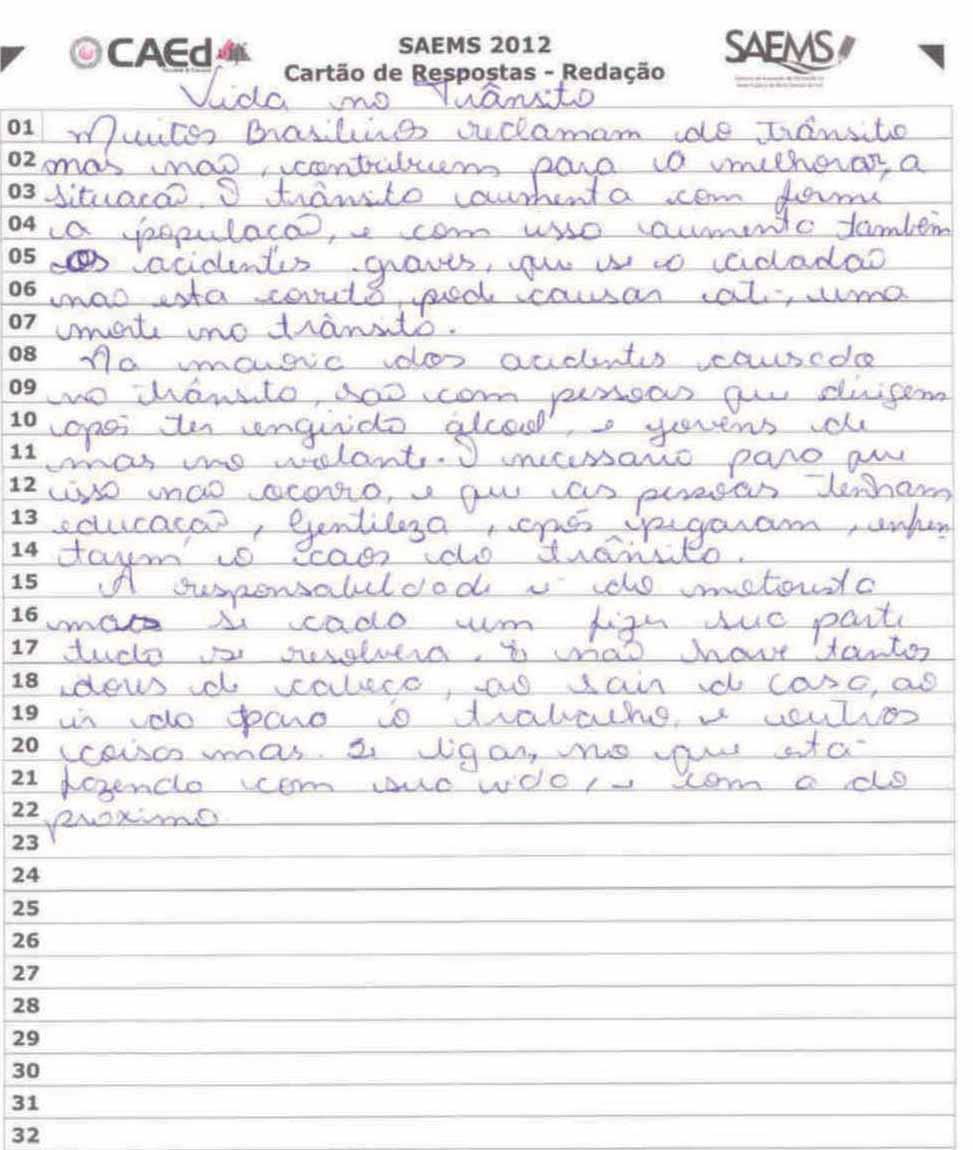 CAEd
SAEMS 2012
SAEMS
Cartão de Respostas - Redação
Vida no Trânsito
01 Muitos Brasileiros reclamam do Trânsito
02 mas não, contribuem para o melhorar, a
03 situacaõ. O trânsito aumenta com forme
04 a populacaõ, e com isso aumento também
05 os acidentes graves, que se o cidadaõ
06 nao esta correto, pode causar até, uma
07 morte no trânsito.
08 Na maioria dos acidentes causado
09 no trânsito, saõ com pessoas que dirigem
10 apos ter engirido álcool, e jovens de
11 mas no volante. O necessario para que
12 isso nao ocorra, e que as pessoas tenham
13 educacaõ, Gentileza, após pegaram, enfren
14 tarem o caos do trânsito.
15 A responsabilidade é do motorista
16 mas se cada um fizer sua parte
17 tudo se resolvera. E naõ have tantos
18 dores de cabeça, ao sair de casa, ao
19 ir do para o trabalho, e outros
20 coisas mas. Se ligar, no que está
21 fazendo com sua vida, e com a do
22 proximo
23
24
25
26
27
28
29
30
31
32